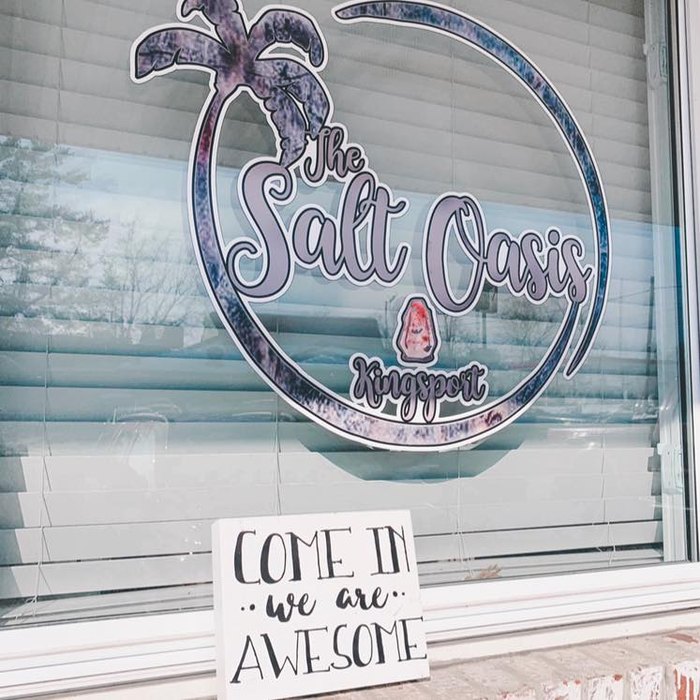 The
Salt Oasis
Kingsport
COME IN
we are
AWESOME